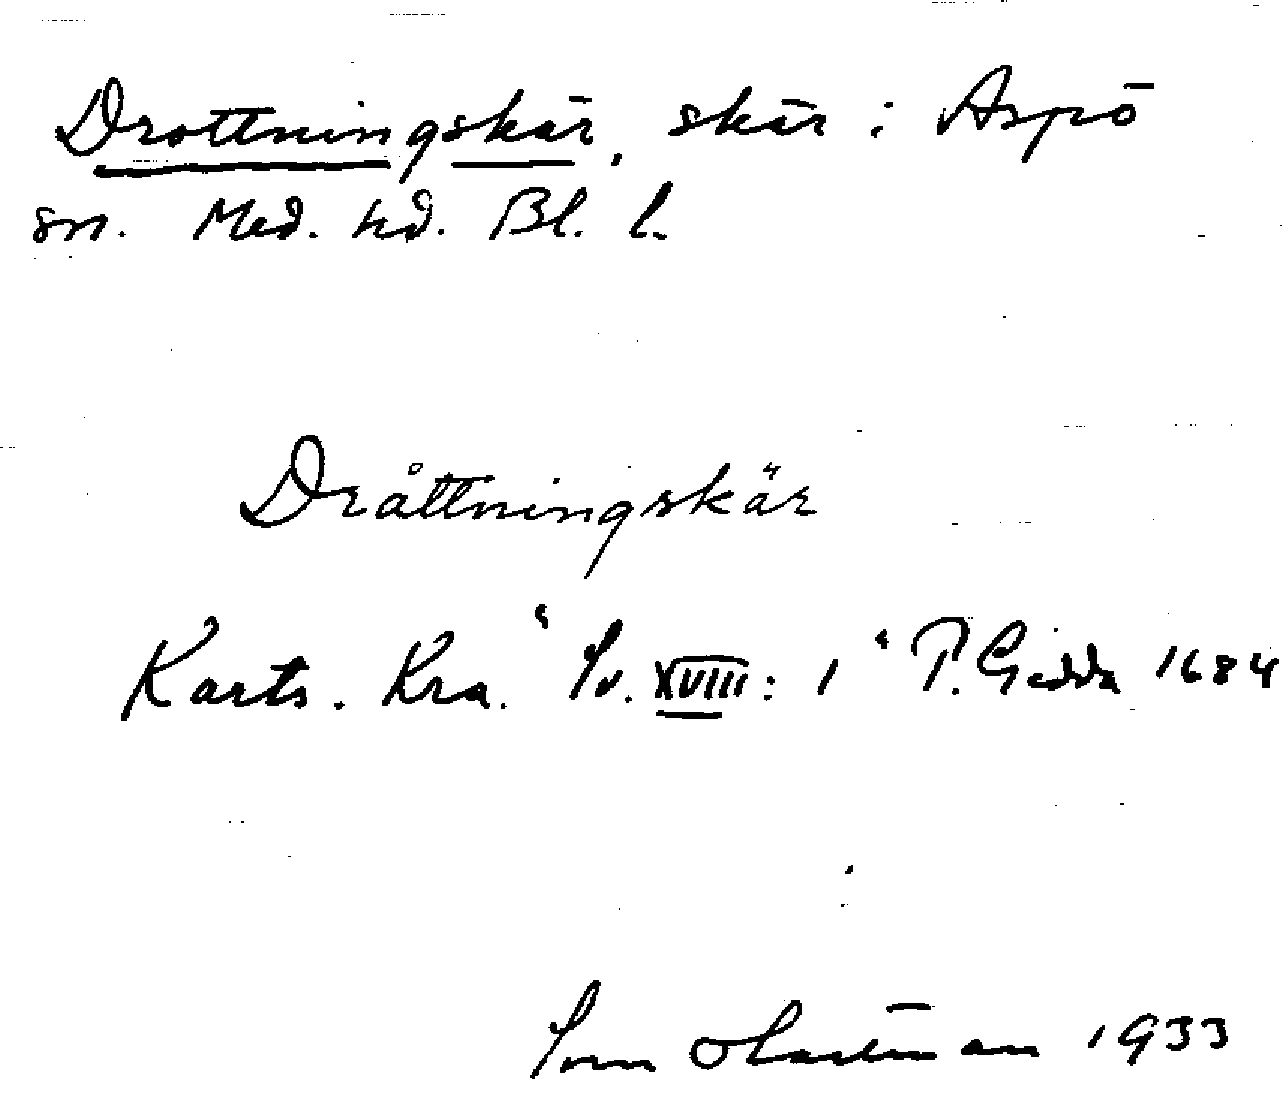 Drottningskär, skär i Aspö
sn. Med. hd. Bl. l.
Dråttningskär
Karts. Kra. "Sv. XVIII: 1" P. Gedda 1684
1933